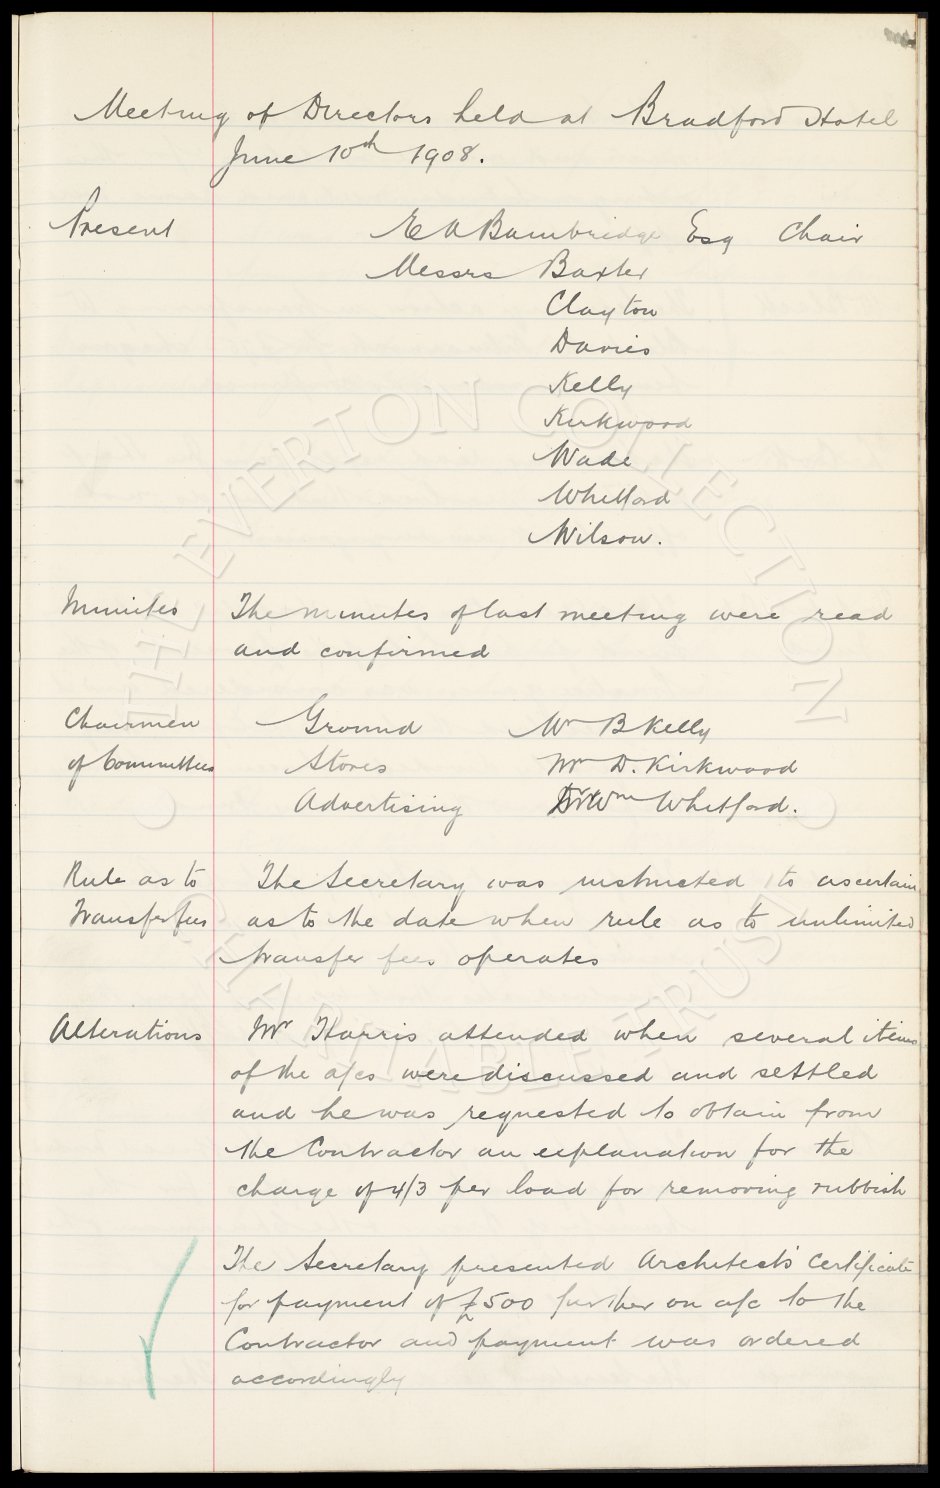 Meeting of Directors held at Bradford Hotel
June 10th 1908.
Present E A Bainbridge Esq Chair
Messrs Baxter
Clayton
Davies
Kelly
Kirkwood
Wade
Whitford
Wilson.
Minutes The minutes of last meeting were read
and confirmed
Chairmen Ground Mr B Kelly
of Committees Stores Mr D. Kirkwood
Advertising Dr Wm Whitford.
Rule as to The Secretary was instructed to ascertain
Transfer fees as to the date when rule as to unlimited
transfer fees operates
Alterations Mr Harris attended when several items
of the a/cs were discussed and settled
and he was requested to obtain from
the Contractor an explanation for the
charge of 4/3 per load for removing rubbish
The Secretary presented Architect's Certificate
for payment of £500 further on a/c to the
Contractor and payment was ordered
accordingly
THE EVERTON COLLECTION CHARITABLE TRUST